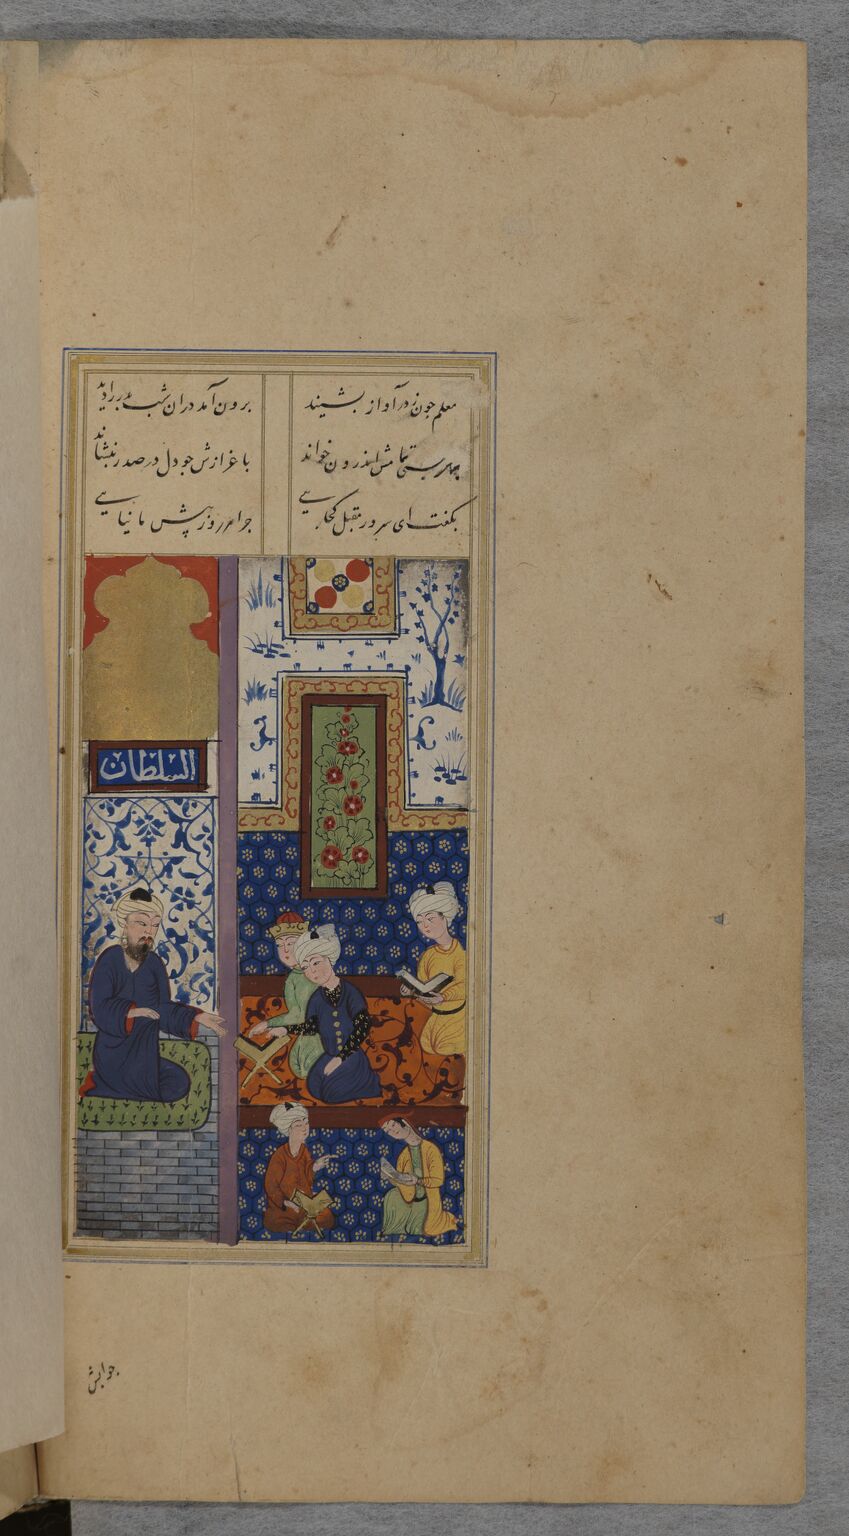 معلم چون ز در آواز بشنید
برون آمد در آن شب بدر را دید
بصد
تمامش اندرون خواند
باعزازش چو دل در صدر بنشاند
بگفت ای سرور مقبل کجایی
چرا هر روز پیش ما نیایی
السلطان
جوابش